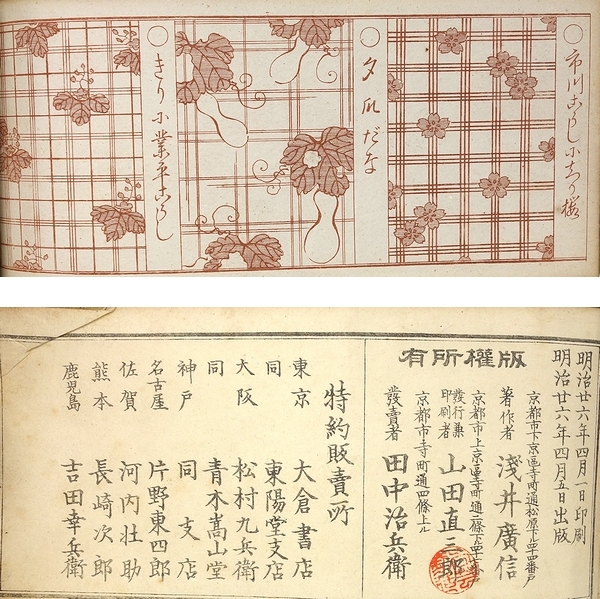 市川こうしにちり櫻
夕瓜だな
きりに業平こうし
明治廿六年四月一日印刷
明治廿六年四月五日出版
版權所有
京都市下京區寺町通松原下ル四十四番戸
著作者 淺井廣信
京都市上京區寺町通二條下ル四十二番戸
發行兼印刷者 山田直三郎
京都市寺町通四條上ル
發賣者 田中治兵衛
特約販賣所
東京 大倉書店
同 東陽堂支店
大阪 松村九兵衛
同 青木嵩山堂
神戸 同支店
名古屋 片野東四郎
佐賀 河内壮助
熊本 長崎次郎
鹿児島 吉田幸兵衛